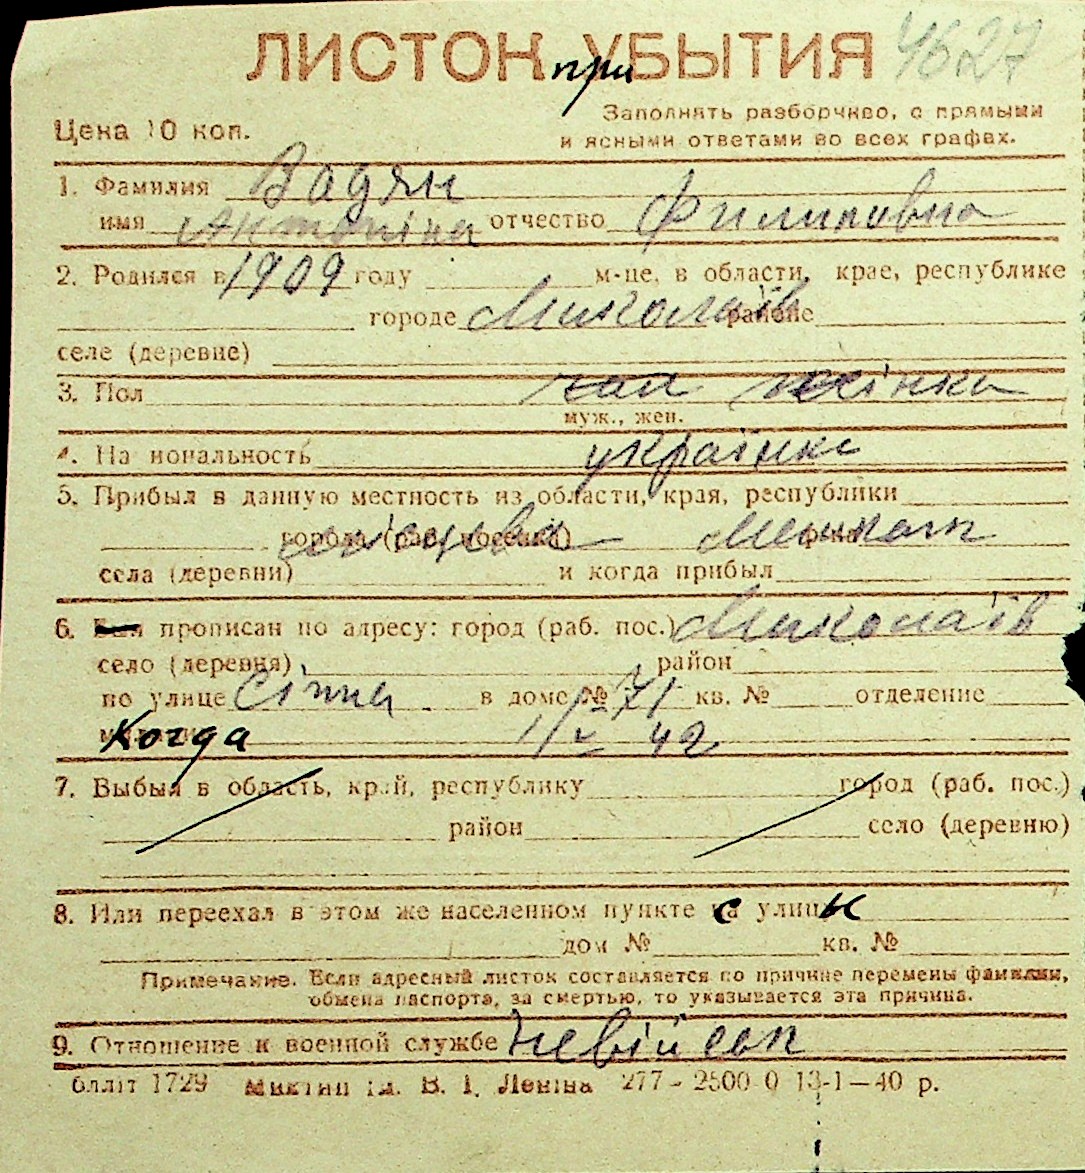 ЛИСТОК при УБЫТИЯ 4627
Цена 10 коп.
Заполнять разборчиво, с прямыми
и ясными ответами во всех графах.
1. Фамилия Вадян
имя Антоніна отчество Филиповна
2. Родился в 1909 году м-це, в области, крае, республике
городе Миколаїв районе
селе (деревне)
3. Пол чол жінка
муж., жен.
4. На иональность українка
5. Прибыл в данную местность из области, края, республики
города (раб. поселка) місцева рна мешкан
села (деревни) и когда прибыл
6. прописан по адресу: город (раб. пос.) Миколаїв
село (деревня) район
по улице Сінна в доме № 71 кв. № отделение
Когда 1/V 42
7. Выбыл в область, край, республику город (раб. пос.)
район село (деревню)
8. Или переехал в этом же населенном пункте с улицы
дом № кв. №
Примечание. Если адресный листок составляется по причине перемены фамилии,
обмена паспорта, за смертью, то указывается эта причина.
9. Отношение к военной службе Невійськ
блліт 1729 Миктип ім. В. І. Леніна 277 - 2500 0 13-1—40 р.